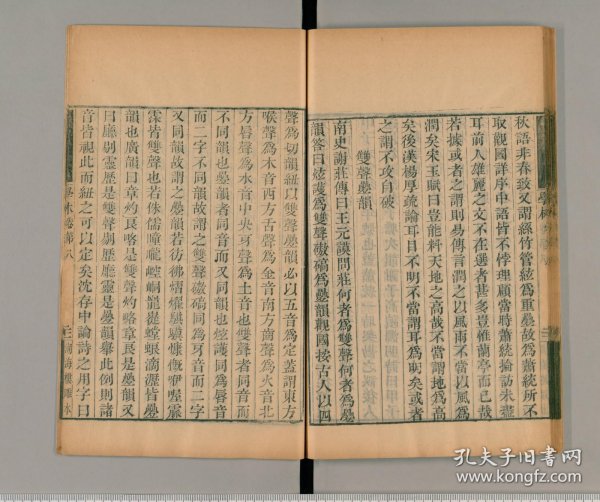 秋語非春致又謂絲竹管絃爲重疊故爲蕭統所不
取觀國詳序中諮皆不悖理顧當時蕭統掄訪未盡
耳前人雄麗之文不在選者甚多豈惟蘭亭而已哉
若據或者之謂則易傳言潤之以風雨不當以風爲
潤矣宋玉賦曰豈能料天地之高哉不當謂地爲高
矣後漢楊厚疏論耳目不明不當謂耳爲明矣或者
之謂不攻自破
雙聲疊韻
南史謝莊傳曰王元謨問莊何者爲雙聲何者爲疊
韻答曰
爲雙聲磝碻爲疊韻觀國按古人以四
聲爲切韻紐以雙聲疊韻必以五音爲定蓋謂東方
喉聲爲木音西方舌聲爲金音南方齒聲爲火音北
方脣聲爲水音中央牙聲爲土音也雙聲者同音而
不同韻也疊韻者同音而又同韻也
護同爲脣音
而二字不同韻故謂之雙聲磝碻同爲牙音而二字
又同韻故謂之疊韻若彷彿熠燿騏驥慷慨咿喔霢
霂皆雙聲也若侏儒童蒙崆峒巃嵸螳蜋滴瀝皆疊
韻也廣韻曰章灼良略是雙聲灼略章良是疊韻又
曰廳剔靈歷是雙聲剔歷廳靈是疊韻舉此例則諸
音皆視此而紐之可以定矣沈存中論詩之用字曰
學林卷第八
湖海樓雕本
孔夫子旧书网
www.kongfz.com